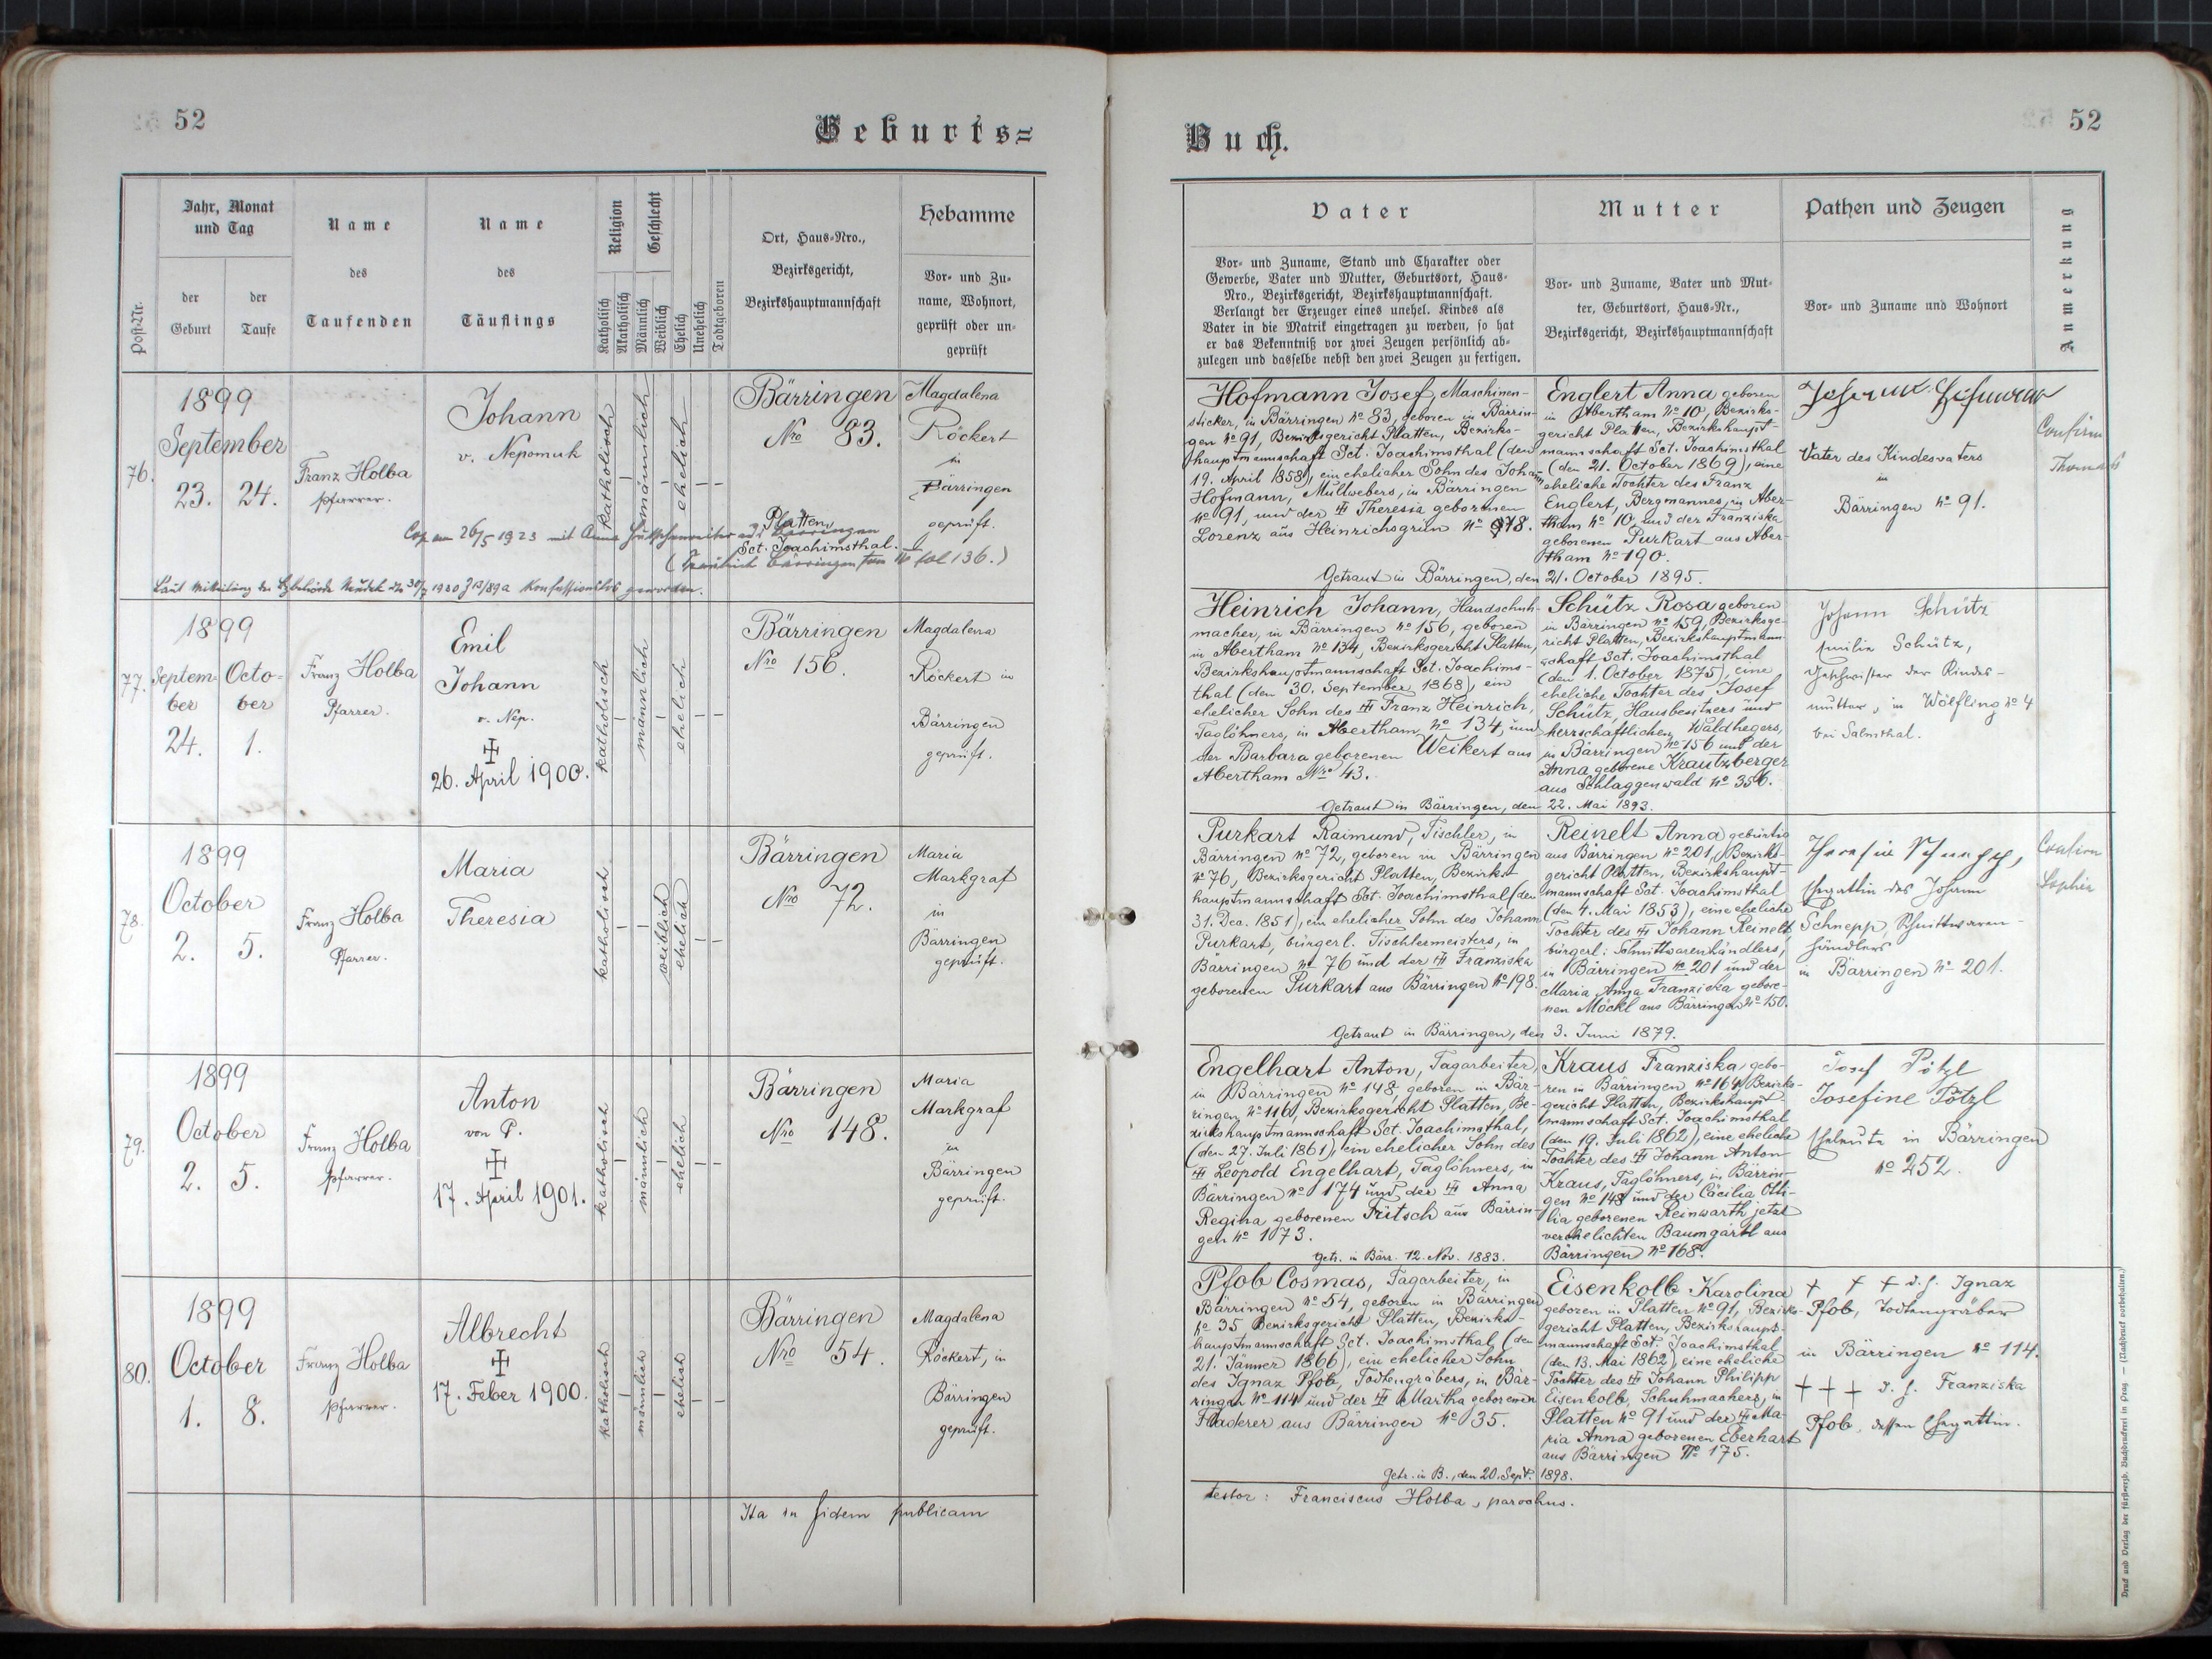 52
Geburts=
Jahr, Monat
und Tag
der
Geburt
der
Taufe
Post-Nr.
Name
des
Taufenden
Name
des
Täuflings
Religion
Katholisch
Akatholisch
Geschlecht
Männlich
Weiblich
Ehelich
Unehelich
Todtgeboren
Ort, Haus-Nro.,
Bezirksgericht,
Bezirkshauptmannschaft
Hebamme
Vor- und Zu-
name, Wohnort,
geprüft oder un-
geprüft
76.
1899
September
23. 24.
Franz Holba
Pfarrer.
Johann
v. Nepomuk
katholisch
männlich
ehelich
Bärringen
Nro 83.
Platten
Sct. Joachimsthal.
Magdalena
Röckert
in
Bärringen
geprüft.
Cop am 26/5 1923 mit Anna
136.)
1899
77. Septem- Octo-
ber ber
24. 1.
Franz Holba
Pfarrer.
Emil
Johann
v. Nep.
26. April 1900.
katholisch
männlich
ehelich
Bärringen
Nro 156.
Magdalena
Röckert in
Bärringen
geprüft.
78.
1899
October
2. 5.
Franz Holba
Pfarrer.
Maria
Theresia
katholisch
weiblich
ehelich
Bärringen
Nro 72.
Maria
Markgraf
in
Bärringen
geprüft.
79.
1899
October
2. 5.
Franz Holba
Pfarrer.
Anton
von P.
17. April 1901.
katholisch
männlich
ehelich
Bärringen
Nro 148.
Maria
Markgraf
in
Bärringen
geprüft.
80.
1899
October
1. 8.
Franz Holba
Pfarrer.
Albrecht
17. Feber 1900.
katholisch
männlich
ehelich
Bärringen
Nro 54.
Magdalena
Röckert, in
Bärringen
geprüft.
Ita in fidem publicam
52
Buch.
Vater
Vor- und Zuname, Stand und Charakter oder
Gewerbe, Vater und Mutter, Geburtsort, Haus-
Nro., Bezirksgericht, Bezirkshauptmannschaft.
Verlangt der Erzeuger eines unehel. Kindes als
Vater in die Matrik eingetragen zu werden, so hat
er das Bekenntniß vor zwei Zeugen persönlich ab-
zulegen und dasselbe nebst den zwei Zeugen zu fertigen.
Mutter
Vor- und Zuname, Vater und Mut-
ter, Geburtsort, Haus-Nr.,
Bezirksgericht, Bezirkshauptmannschaft
Pathen und Zeugen
Vor- und Zuname und Wohnort
Anmerkung
Hofmann Josef, Maschinen-
sticker, in Bärringen No 83, geboren in Bärrin-
gen No 91, Bezirksgericht Platten, Bezirks-
hauptmannschaft Sct. Joachimsthal (den
19. April 1858), ein ehelicher Sohn des Johann
Hofmann, Müllwebers, in Bärringen
No 91, und der Theresia geborenen
Lorenz aus Heinrichsgrün No 78.
Englert Anna geboren
in Abertham No 10, Bezirks-
gericht Platten, Bezirkshaupt-
mannschaft Sct. Joachimsthal
(den 21. October 1869), eine
eheliche Tochter des Franz
Englert, Bergmannes, in Aber-
tham No 10, und der Franziska
geborenen Purkart aus Aber-
tham No 190.
Getraut in Bärringen, den 21. October 1895.
Vater des Kindesvaters
in
Bärringen No 91.
Confirm
Thomas
Heinrich Johann, Handschuh-
macher, in Bärringen No 156, geboren
in Abertham No 134, Bezirksgericht Platten,
Bezirkshauptmannschaft Sct. Joachims-
thal (den 30. September 1868), ein
ehelicher Sohn des Franz Heinrich,
Taglöhners, in Abertham No 134, und
der Barbara geborenen Weikert aus
Abertham Nro 43.
Schütz Rosa geboren
in Bärringen No 159, Bezirksge-
richt Platten, Bezirkshauptmann-
schaft Sct. Joachimsthal
(den 1. October 1875), eine
eheliche Tochter des Josef
Schütz, Hausbesitzers und
herrschaftlichen Waldhegers,
in Bärringen No 156 und der
Anna geborene Krautzberger
aus Schlaggenwald No 356.
Getraut in Bärringen, den 22. Mai 1893.
Johann Schütz
Emilie Schütz,
Geschwister der Kindes-
mutter, in Wölfling No 4
bei Salmthal.
Purkart Raimund, Tischler, in
Bärringen No 72, geboren in Bärringen
No 76, Bezirksgericht Platten, Bezirks-
hauptmannschaft Sct. Joachimsthal (den
31. Dec. 1851), ein ehelicher Sohn des Johann
Purkart, bürgerl. Tischlermeisters, in
Bärringen No 76 und der Franziska
geborenen Purkart aus Bärringen No 198.
Reinelt Anna gebürtig
aus Bärringen No 201, Bezirks-
gericht Platten, Bezirkshaupt-
mannschaft Sct. Joachimsthal
(den 4. Mai 1853), eine eheliche
Tochter des Johann Reinelt,
bürgerl: Schnittwarenhändlers,
in Bärringen No 201 und der
Maria Anna Franziska gebore-
nen Möckl aus Bärringen No 150.
Getraut in Bärringen, den 3. Juni 1879.
Theresia Schnepp,
Ehegattin des Johann
Schnepp, Schnittwaren-
händlers
in Bärringen No 201.
Sophia
Engelhart Anton, Tagarbeiter,
in Bärringen No 148, geboren in Bär-
ringen No 116, Bezirksgericht Platten, Be-
zirkshauptmannschaft Sct. Joachimsthal,
(den 27. Juli 1861), ein ehelicher Sohn des
Leopold Engelhart, Taglöhners, in
Bärringen No 174 und der Anna
Regina geborenen Fritsch aus Bärrin-
gen No 173.
Getr. in Bärr. 12. Nov. 1883.
Kraus Franziska, gebo-
ren in Bärringen No 164, Bezirks-
gericht Platten, Bezirkshaupt-
mannschaft Sct. Joachimsthal
(den 19. Juli 1862), eine eheliche
Tochter des Johann Anton
Kraus, Taglöhners, in Bärrin-
gen No 148 und der Cäcilia Otti-
lia geborenen Reinwarth jetzt
verehelichten Baumgärtl aus
Bärringen No 168.
Josef Pötzl
Josefine Pötzl
Eheleute in Bärringen
No 252.
Pfob Cosmas, Tagarbeiter, in
Bärringen No 54, geboren in Bärringen
No 35 Bezirksgericht Platten, Bezirks-
hauptmannschaft Sct. Joachimsthal, (den
21. Jänner 1866), ein ehelicher Sohn
des Ignaz Pfob, Todtengräbers, in Bär-
ringen No 114 und der Martha geborenen
Fladerer aus Bärringen No 35.
Eisenkolb Karolina
geboren in Platten No 91, Bezirks-
gericht Platten, Bezirkshaupt-
mannschaft Sct. Joachimsthal
(den 13. Mai 1862) eine eheliche
Tochter des Johann Philipp
Eisenkolb, Schuhmachers, in
Platten No 91 und der Ma-
ria Anna geborenen Eberhart
aus Bärringen No 175.
Getr. in B., den 20. Sept. 1898.
+ + + d. h. Ignaz
Pfob, Todtengräber
in Bärringen No 114.
+ + + d. h. Franziska
Pfob, dessen Ehegattin.
testor: Franciscus Holba, parochus.
Druck und Verlag der fürsterzb. Buchdruckerei in Prag — (Nachdruck vorbehalten.)